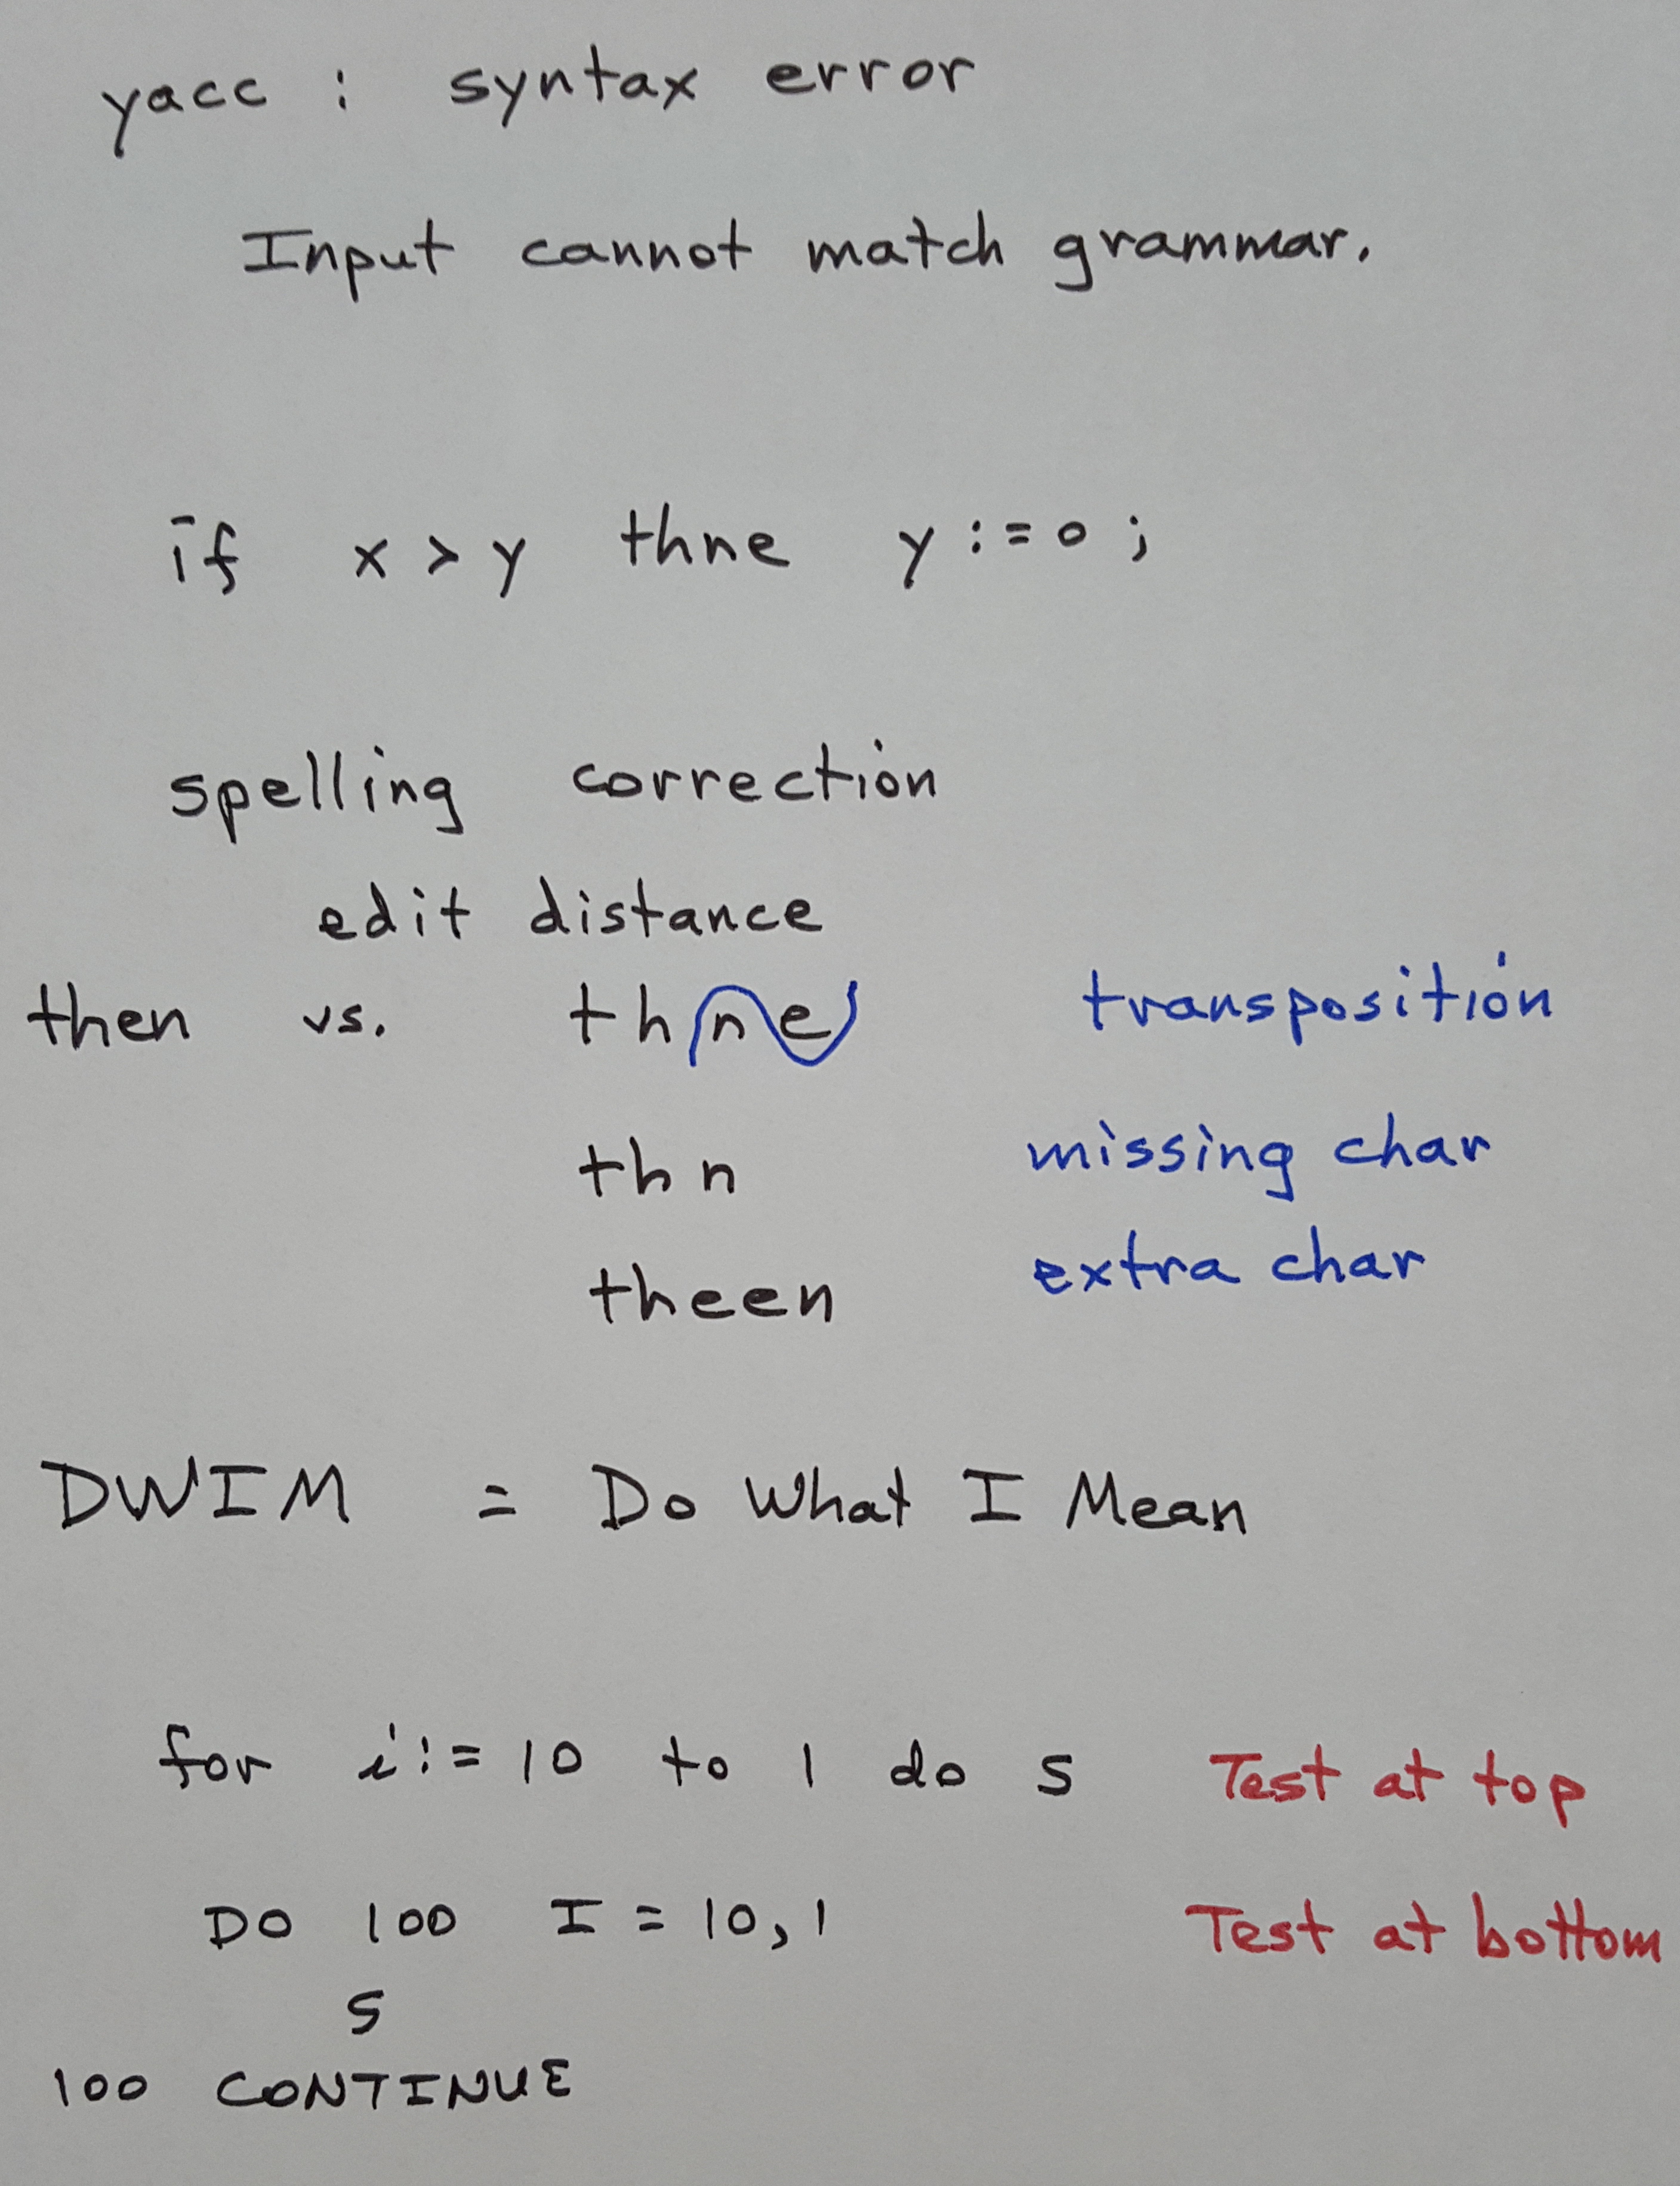 yacc : syntax error
Input cannot match grammar.
if x > y thne y := 0 ;
spelling correction
edit distance
then vs. thne transposition
thn missing char
theen extra char
DWIM = Do What I Mean
for i := 10 to 1 do s Test at top
DO 100 I = 10, 1 Test at bottom
S
100 CONTINUE